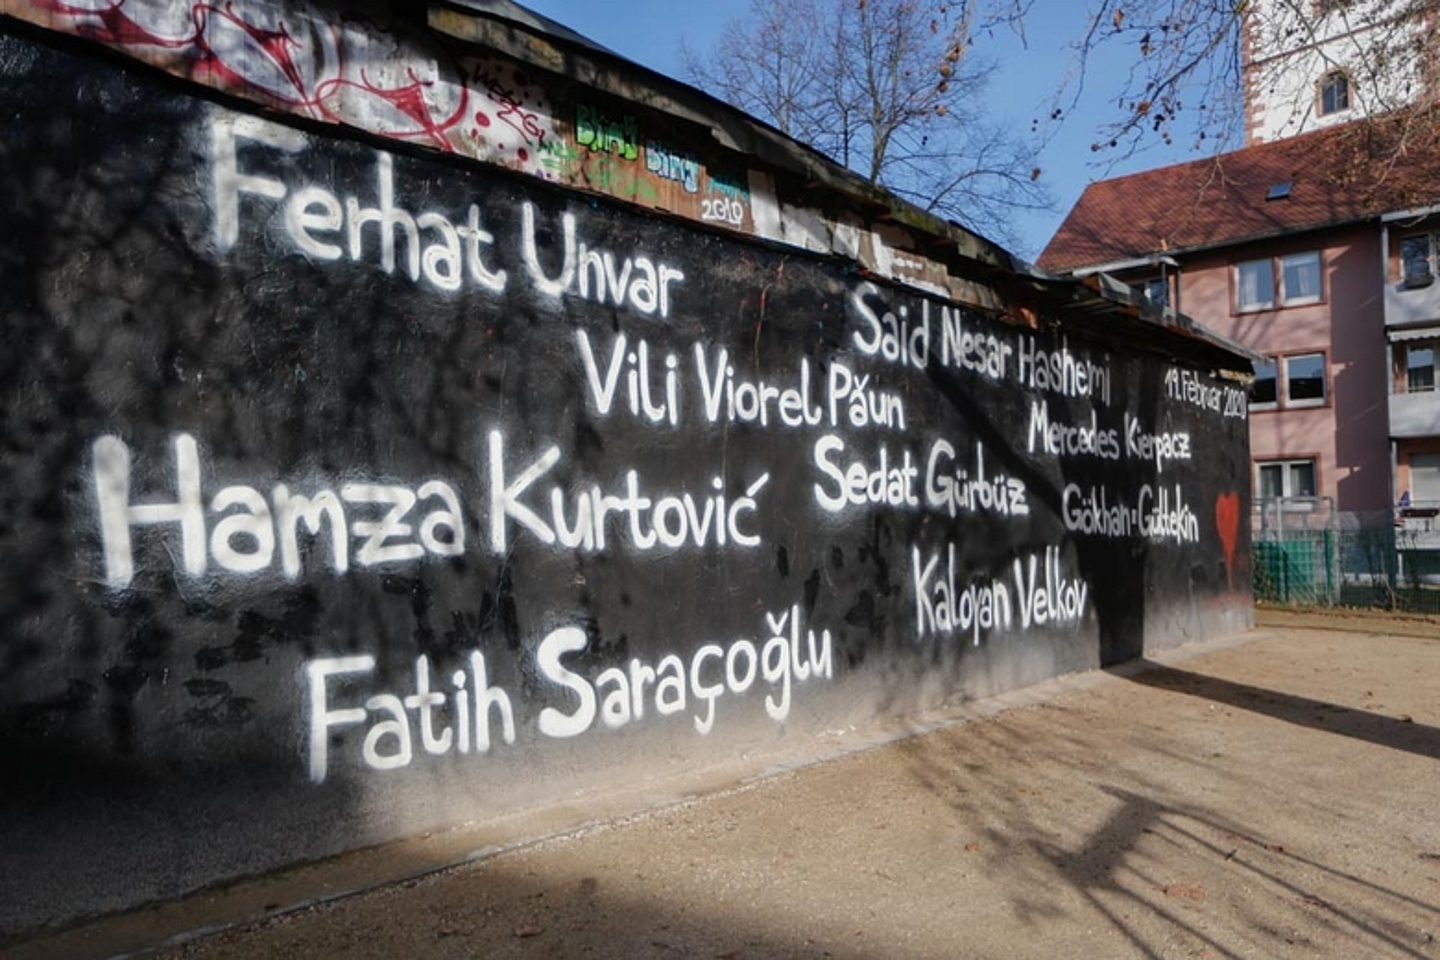 Ferhat Unvar
Said Nesar Hashemi
19. Februar 2020
Vili Viorel Păun
Mercedes Kierpacz
Hamza Kurtović
Sedat Gürbüz
Gökhan Gültekin
Kaloyan Velkov
Fatih Saraçoğlu
2010